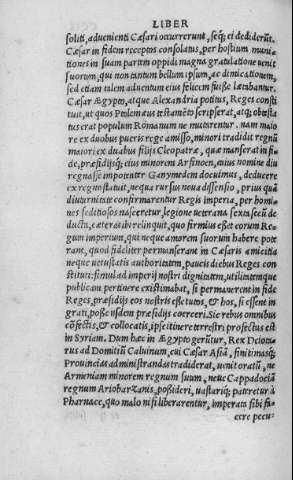 LIBER
soliti, advenienti Cæsari occurrerunt, seq́; ei dediderũt.
Cæsar in fidem receptos consolatus, per hostium muni-
tiones in suam partem oppidi magna gratulatione venit
suorum, qui non tantum bellum ipsum, ac dimicationem,
sed etiam talem adventum eius felicem fuisse lætabantur.
Cæsar Ægypto, atque Alexandria potitus, Reges consti
tuit, ut quos Ptolemæus testamẽto scripserat, atq; obtesta
tus erat populum Romanum ne mutarentur. nam maio
re ex duobus pueris rege amisso, minori tradidit regnũ
maiori ex duabus filijs Cleopatræ, quæ manserat in fi
de, præsidijsq́; eius minorem Arsinoen, cuius nomine diu
regnasse impotenter Ganymedem docuimus, deducere
ex regno statuit, neque rursus noua dissensio, prius quã
diuturnitate confirmarentur Regis imperia, per homi
nes seditiosos nasceretur, legione veterana sexta secũ de
ducta, cæteras ibi relinquit, quo firmius esset eorum Re-
gum imperium, qui neque amorem suorum habere pote
rant, quod fideliter permanserant in Cæsaris amicitia
neque vetustatis authoritatem, paucis diebus Reges con
stitutis: simul ad imperij nostri dignitatem, utilitatemque
publicam pertinere existimabat, si permanerent in fide
Reges, præsidijs eos nostris esse tutos, & hos, si essent in
grati, posse ijsdem præsidijs coerceri. Sic rebus omnibus
cõfectis, & collocatis, ipse itinere terrestri profectus est
in Syriam. Dum hæc in Ægypto gerũtur, Rex Deiota
rus ad Domitiũ Calvinum, cui Cæsar Asiã, finitimasq́;
Provincias administrandas tradiderat, venit oratũ, ne
Armeniam minorem regnum suum, neve Cappadociã
regnum Ariobarzanis, possideri, vastariq́; pateretur à
Pharnace, quo malo nisi liberarentur, imperata sibi fa-
cere pecu-